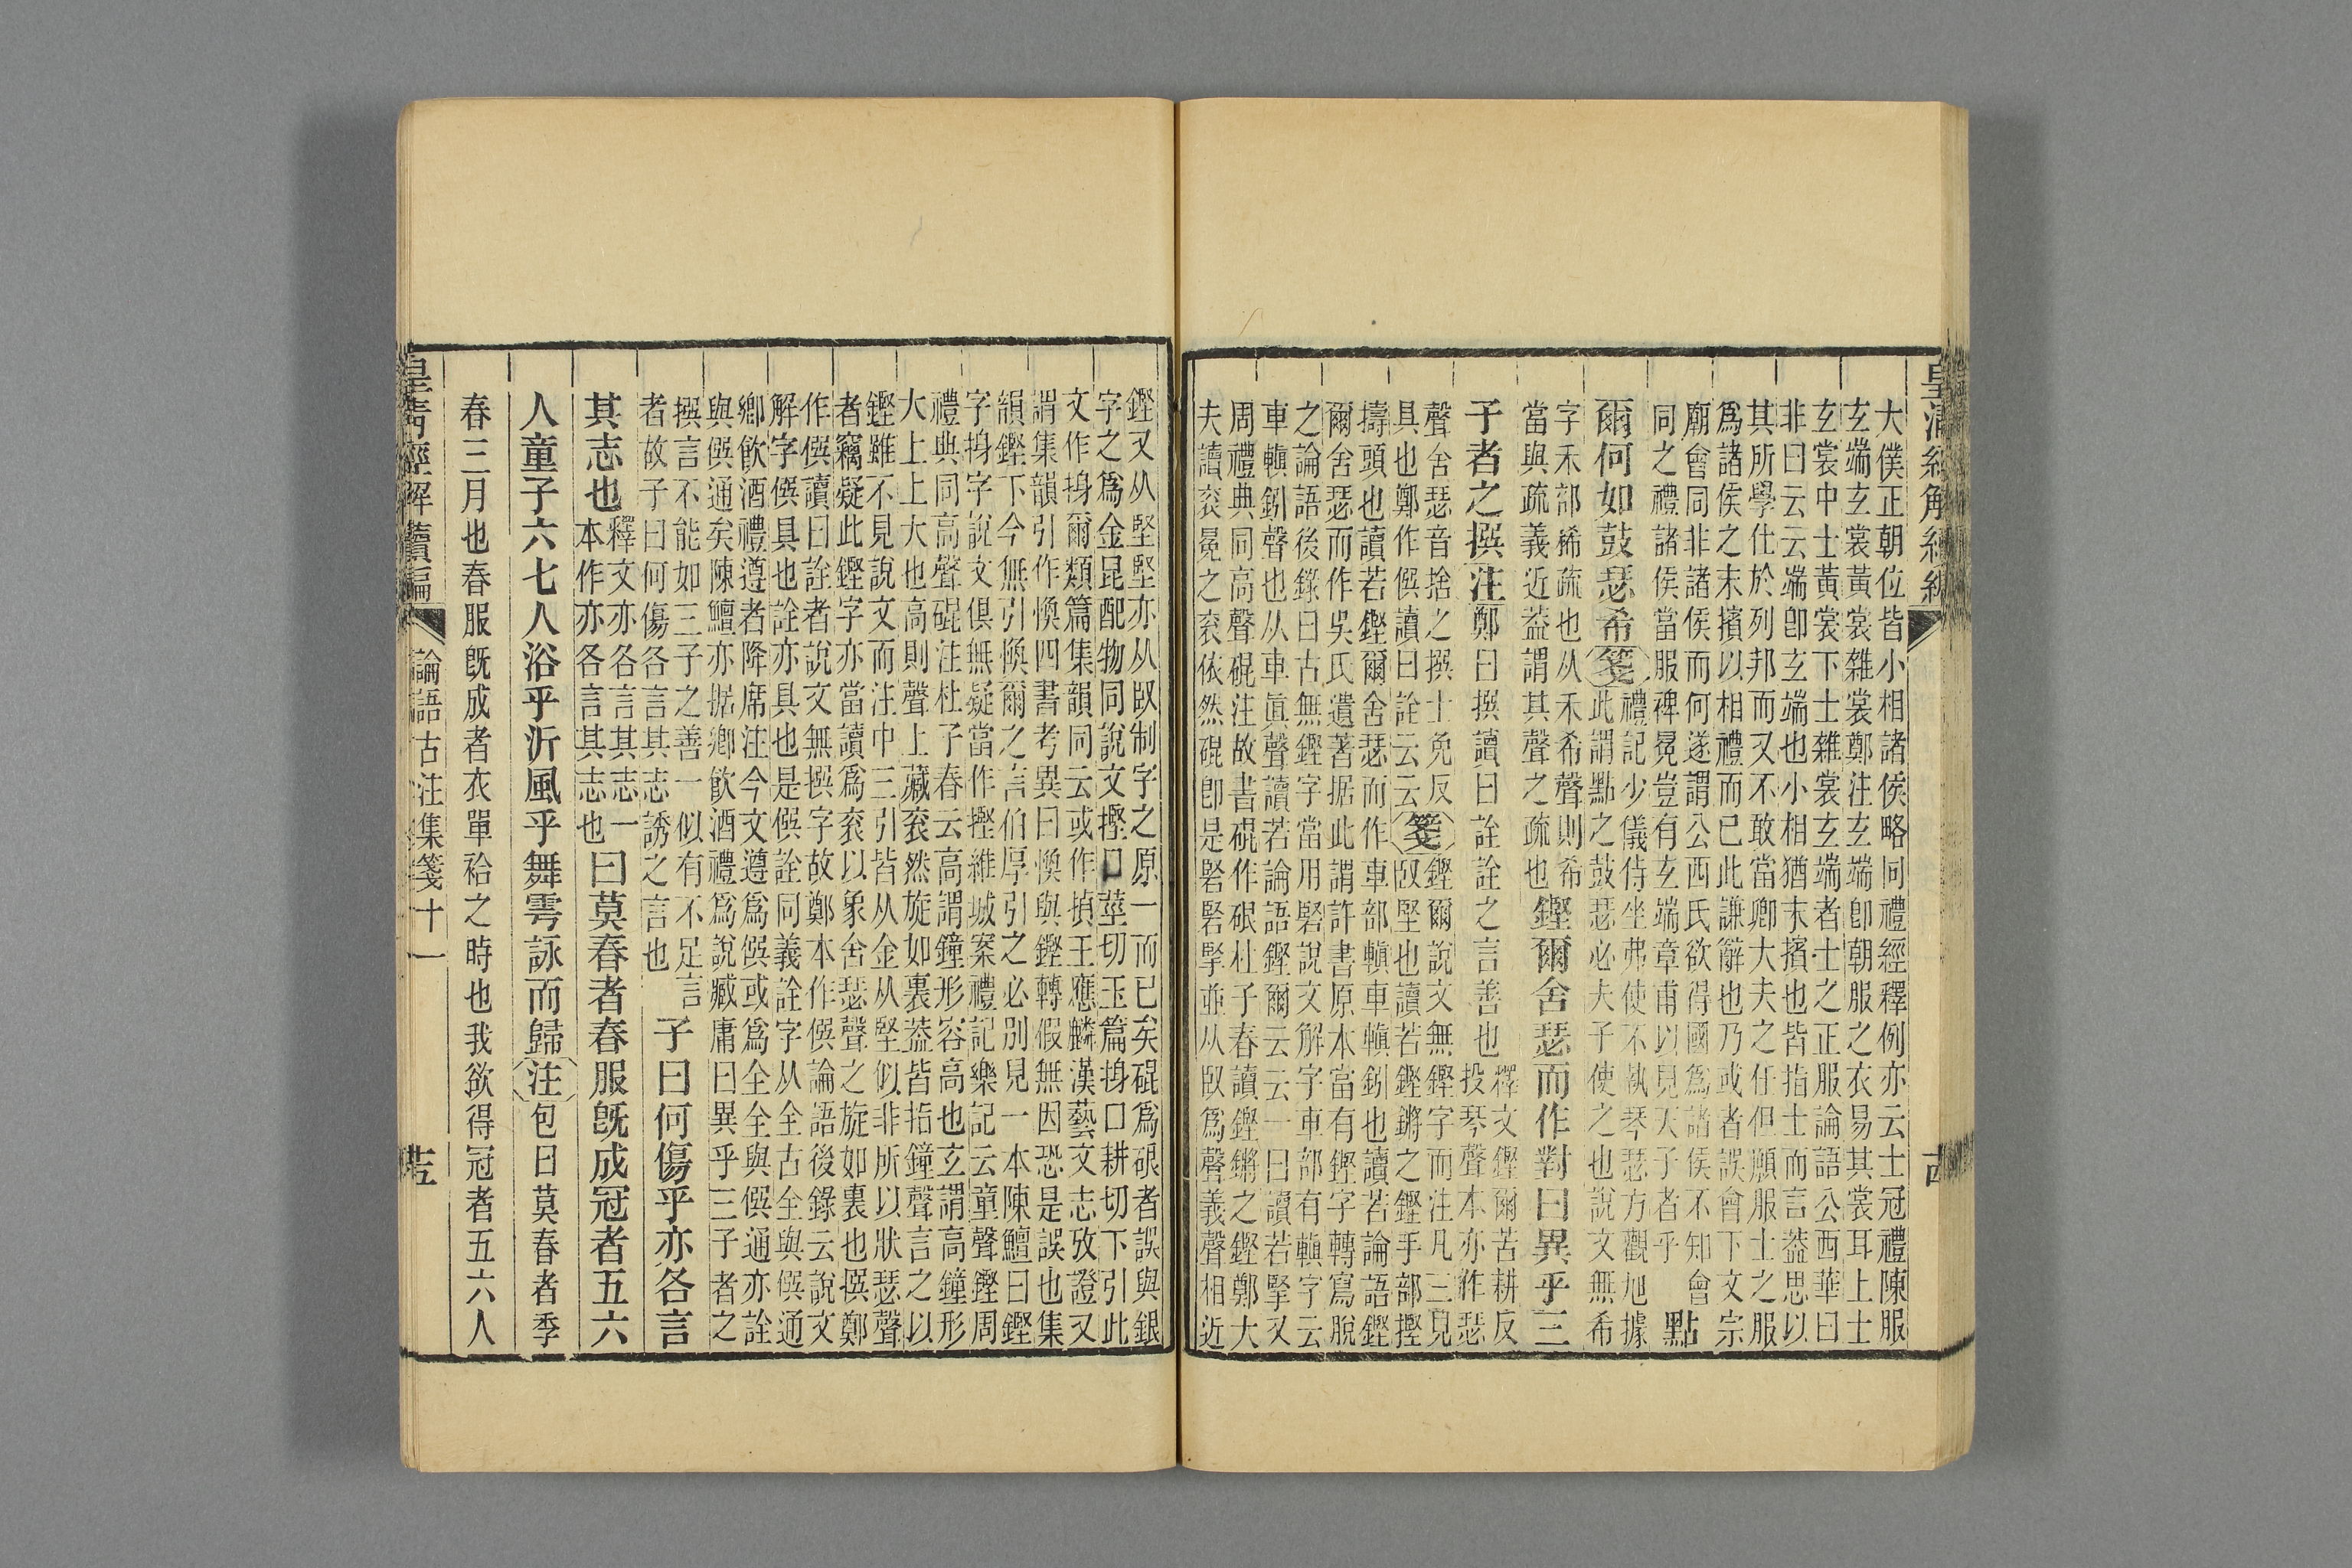 皇清經解續編
大僕正朝位皆小相諸侯略同禮經釋例亦云士冠禮陳服
玄端玄裳黃裳雜裳鄭注玄端卽朝服之衣易其裳耳上士
玄裳中士黃裳下士雜裳玄端者士之正服論語公西華曰
非曰云云端卽玄端也小相猶末擯也皆指士而言葢思以
其所學仕於列邦而又不敢當卿大夫之任但願服士之服
爲諸侯之末擯以相禮而已此謙辭也乃或者誤會下文宗
廟會同非諸侯而何遂謂公西氏欲得國爲諸侯不知會
同之禮諸侯當服裨冕豈有玄端章甫以見天子者乎
點
爾何如鼓瑟希
箋
禮記少儀侍坐弗使不執琴瑟方觀旭據
此謂點之鼓瑟必夫子使之也說文無希
字禾部稀疏也从禾希聲則希
當與疏義近葢謂其聲之疏也
鏗爾舍瑟而作對曰異乎三
子者之撰
注
鄭曰撰讀曰詮詮之言善也
釋文鏗爾苦耕反
投琴聲本亦作瑟
聲舍瑟音捨之撰士免反
具也鄭作僎讀曰詮云云
箋
鏗爾說文無鏗字而注凡三見
臤堅也讀若鏗鏘之鏗手部摼
擣頭也讀若鏗爾舍瑟而作車部轒車轒釰也讀若論語鏗
爾舍瑟而作吳氏遺著据此謂許書原本當有鏗字轉寫脫
之論語後錄曰古無鏗字當用硻說文解字車部有轒字云
車轒釰聲也从車眞聲讀若論語鏗爾云云一曰讀若掔又
周禮典同高聲䃘注故書䃘作硍杜子春讀鏗鏘之鏗鄭大
夫讀袞冕之袞依然䃘卽是硻硻掔並从臤爲聲義聲相近
鏗又从堅堅亦从臤制字之原一而已矣䃘爲硍者誤與銀
字之爲金昆配物同說文摼口莖切玉篇挰口耕切下引此
文作挰爾類篇集韻同云或作揁王應麟漢藝文志攷證又
謂集韻引作㨪四書考異曰㨪與鏗轉假無因恐是誤也集
韻鏗下今無引㨪爾之言伯厚引之必別見一本陳鱣曰鏗
字挰字說文俱無疑當作摼維城案禮記樂記云童聲鏗周
禮典同高聲䃘注杜子春云高謂鐘形容高也玄謂高鐘形
大上上大也高則聲上藏袞然旋如裏葢皆指鐘聲言之以
鏗雖不見說文而注中三引皆从金从堅似非所以狀瑟聲
者竊疑此鏗字亦當讀爲袞以象舍瑟聲之旋如裏也撰鄭
作僎讀曰詮者說文無撰字故鄭本作僎論語後錄云說文
解字僎具也詮亦具也是僎詮同義詮字从全古全與僎通
鄉飮酒禮遵者降席注今文遵爲僎或爲全全與僎通亦詮
與僎通矣陳鱣亦据鄉飮酒禮爲說臧庸曰異乎三子者之
撰言不能如三子之善一似有不足言
者故子曰何傷各言其志誘之言也
子曰何傷乎亦各言
其志也
釋文亦各言其志一
本作亦各言其志也
曰莫春者春服旣成冠者五六
人童子六七人浴乎沂風乎舞雩詠而歸
注
包曰莫春者季
春三月也春服旣成者衣單袷之時也我欲得冠者五六人
皇淸經解續編
論語古注集箋十一